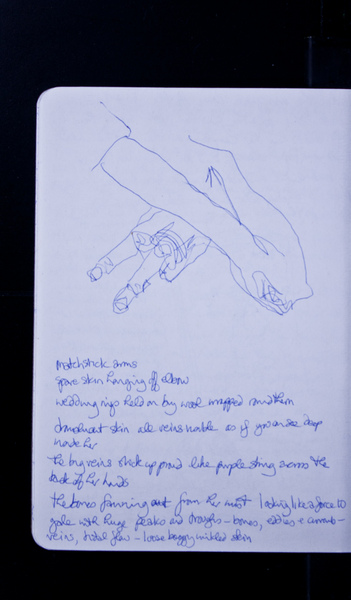 matchstick arms
spare skin hanging off elbow
wedding rings held on by wool wrapped round them
skin all veins visible as if you can see deep
inside her
the big veins stick up proud like purple string across the
back of her hands
the bones fanning out from her wrist looking like a force 10
gale with huge peaks and troughs - bones,
veins, tidal flow - loose baggy wrinkled skin